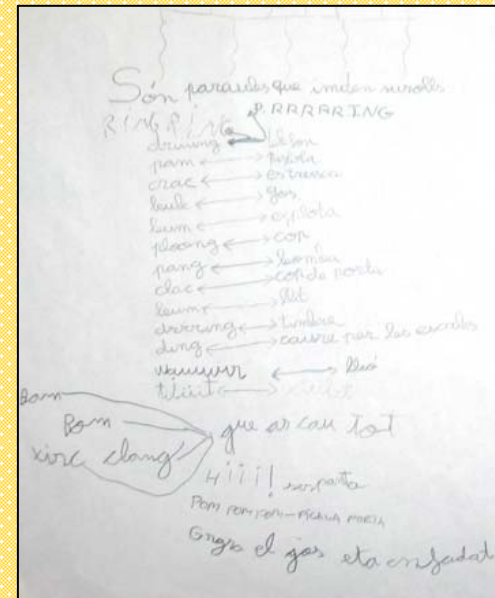 Són paraules que imiten sorolls
RING RING RRRRRING
driiing telefon
pam pistola
crac estrenca
gos
explota
plaang cop
pang bomba
clac cop de porta
drrring timbre
ding caure per les escales
lleó
Bom
Bom
xirc clang que as cau tot
Hiiii!
POM POM POM PICA LA PORTA
el gos eta enfadat